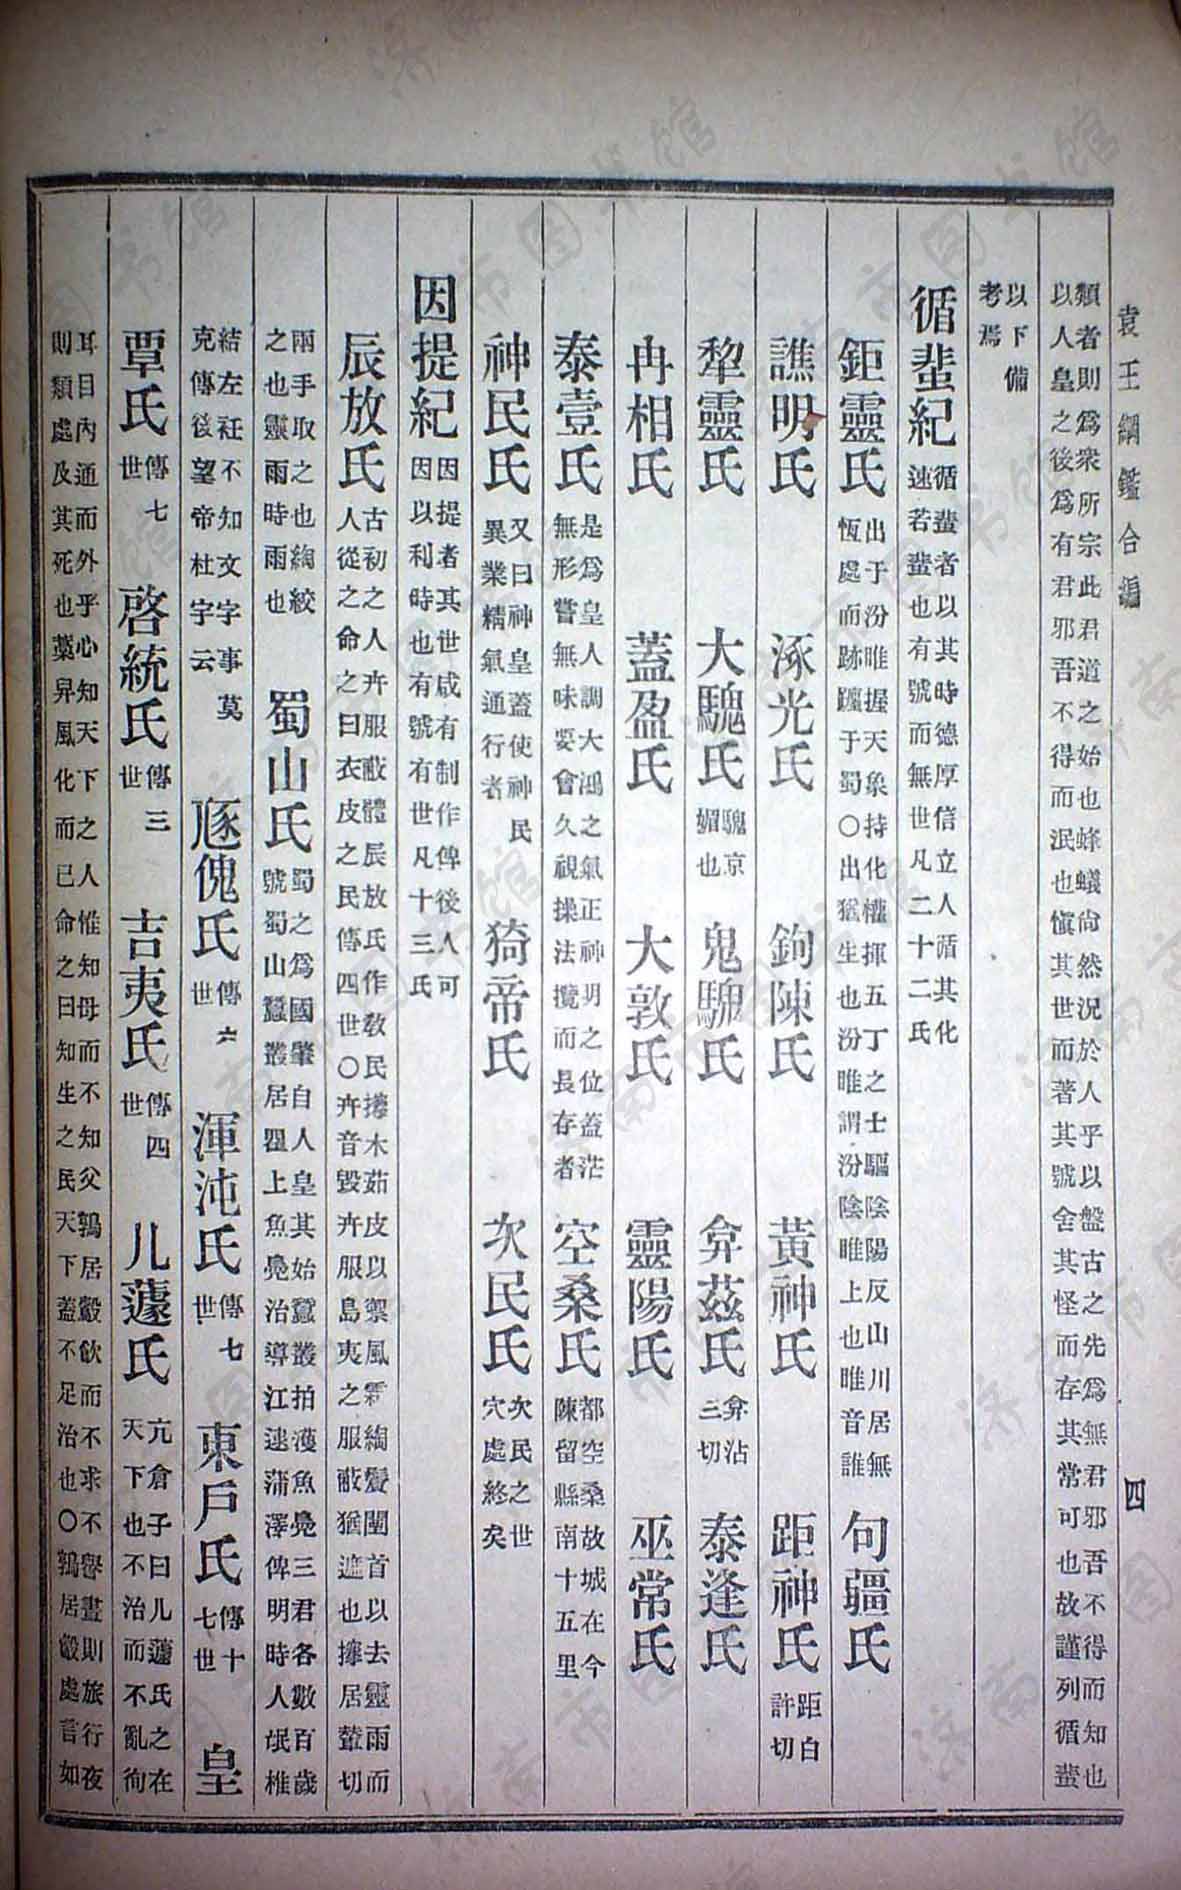 袁王綱鑑合編
四
類者則爲衆所宗此君道之始也蜂蟻尙然況於人乎以盤古之先爲無君邪吾不得而知也
以人皇之後爲有君邪吾不得而泯也愼其世而著其號舍其怪而存其常可也故謹列循蜚
以下備
考焉
循蜚紀
循蜚者以其時德厚信立人循其化
速若蜚也有號而無世凡二十二氏
鉅靈氏
出于汾睢握天象持化權揮五丁之士驅陰陽反山川居無
恆處而跡躔于蜀〇出猶生也汾睢謂汾陰睢上也睢音誰
句疆氏
譙明氏 涿光氏 鉤陳氏 黃神氏 距神氏
距白
許切
犁靈氏 大騩氏
騩京
媚也
鬼騩氏 弇茲氏
弇沾
三切
泰逢氏
冉相氏 蓋盈氏 大敦氏 靈陽氏 巫常氏
泰壹氏
是爲皇人調大鴻之氣正神明之位蓋茫
無形嘗無味要會久視操法攬而長存者
空桑氏
都空桑故城在今
陳留縣南十五里
神民氏
又曰神皇蓋使神民
異業精氣通行者
猗帝氏 次民氏
次民之世
穴處終矣
因提紀
因提者其世咸有制作俾後人可
因以利時也有號有世凡十三氏
辰放氏
古初之人卉服蔽體辰放氏作敎民㩴木茹皮以禦風霜綯髮閺首以去靈雨而
人從之命之曰衣皮之民傳四世〇卉音毀卉服島夷之服蔽猶遮也㩴居輦切
兩手取之也綯絞
之也靈雨時雨也
蜀山氏
蜀之爲國肇自人皇其始蠶叢拍濩魚鳧三君各數百歲
號蜀山蠶叢居瞿上魚鳧治導江逮蒲澤俾明時人氓椎
結左衽不知文字事莫
克傳後望帝杜宇云
豗傀氏
傳六
世
渾沌氏
傳七
世
東戶氏
傳十
七世
皇
覃氏
傳七
世
啓統氏
傳三
世
吉夷氏
傳四
世
几蘧氏
亢倉子曰几蘧氏之在
天下也不治而不亂徇
耳目內通而外乎心知天下之人惟知母而不知父鶉居鷇飲而不求不譽晝則旅行夜
則類處及其死也藁舁風化而已命之曰知生之民天下蓋不足治也〇鶉居鷇處言如